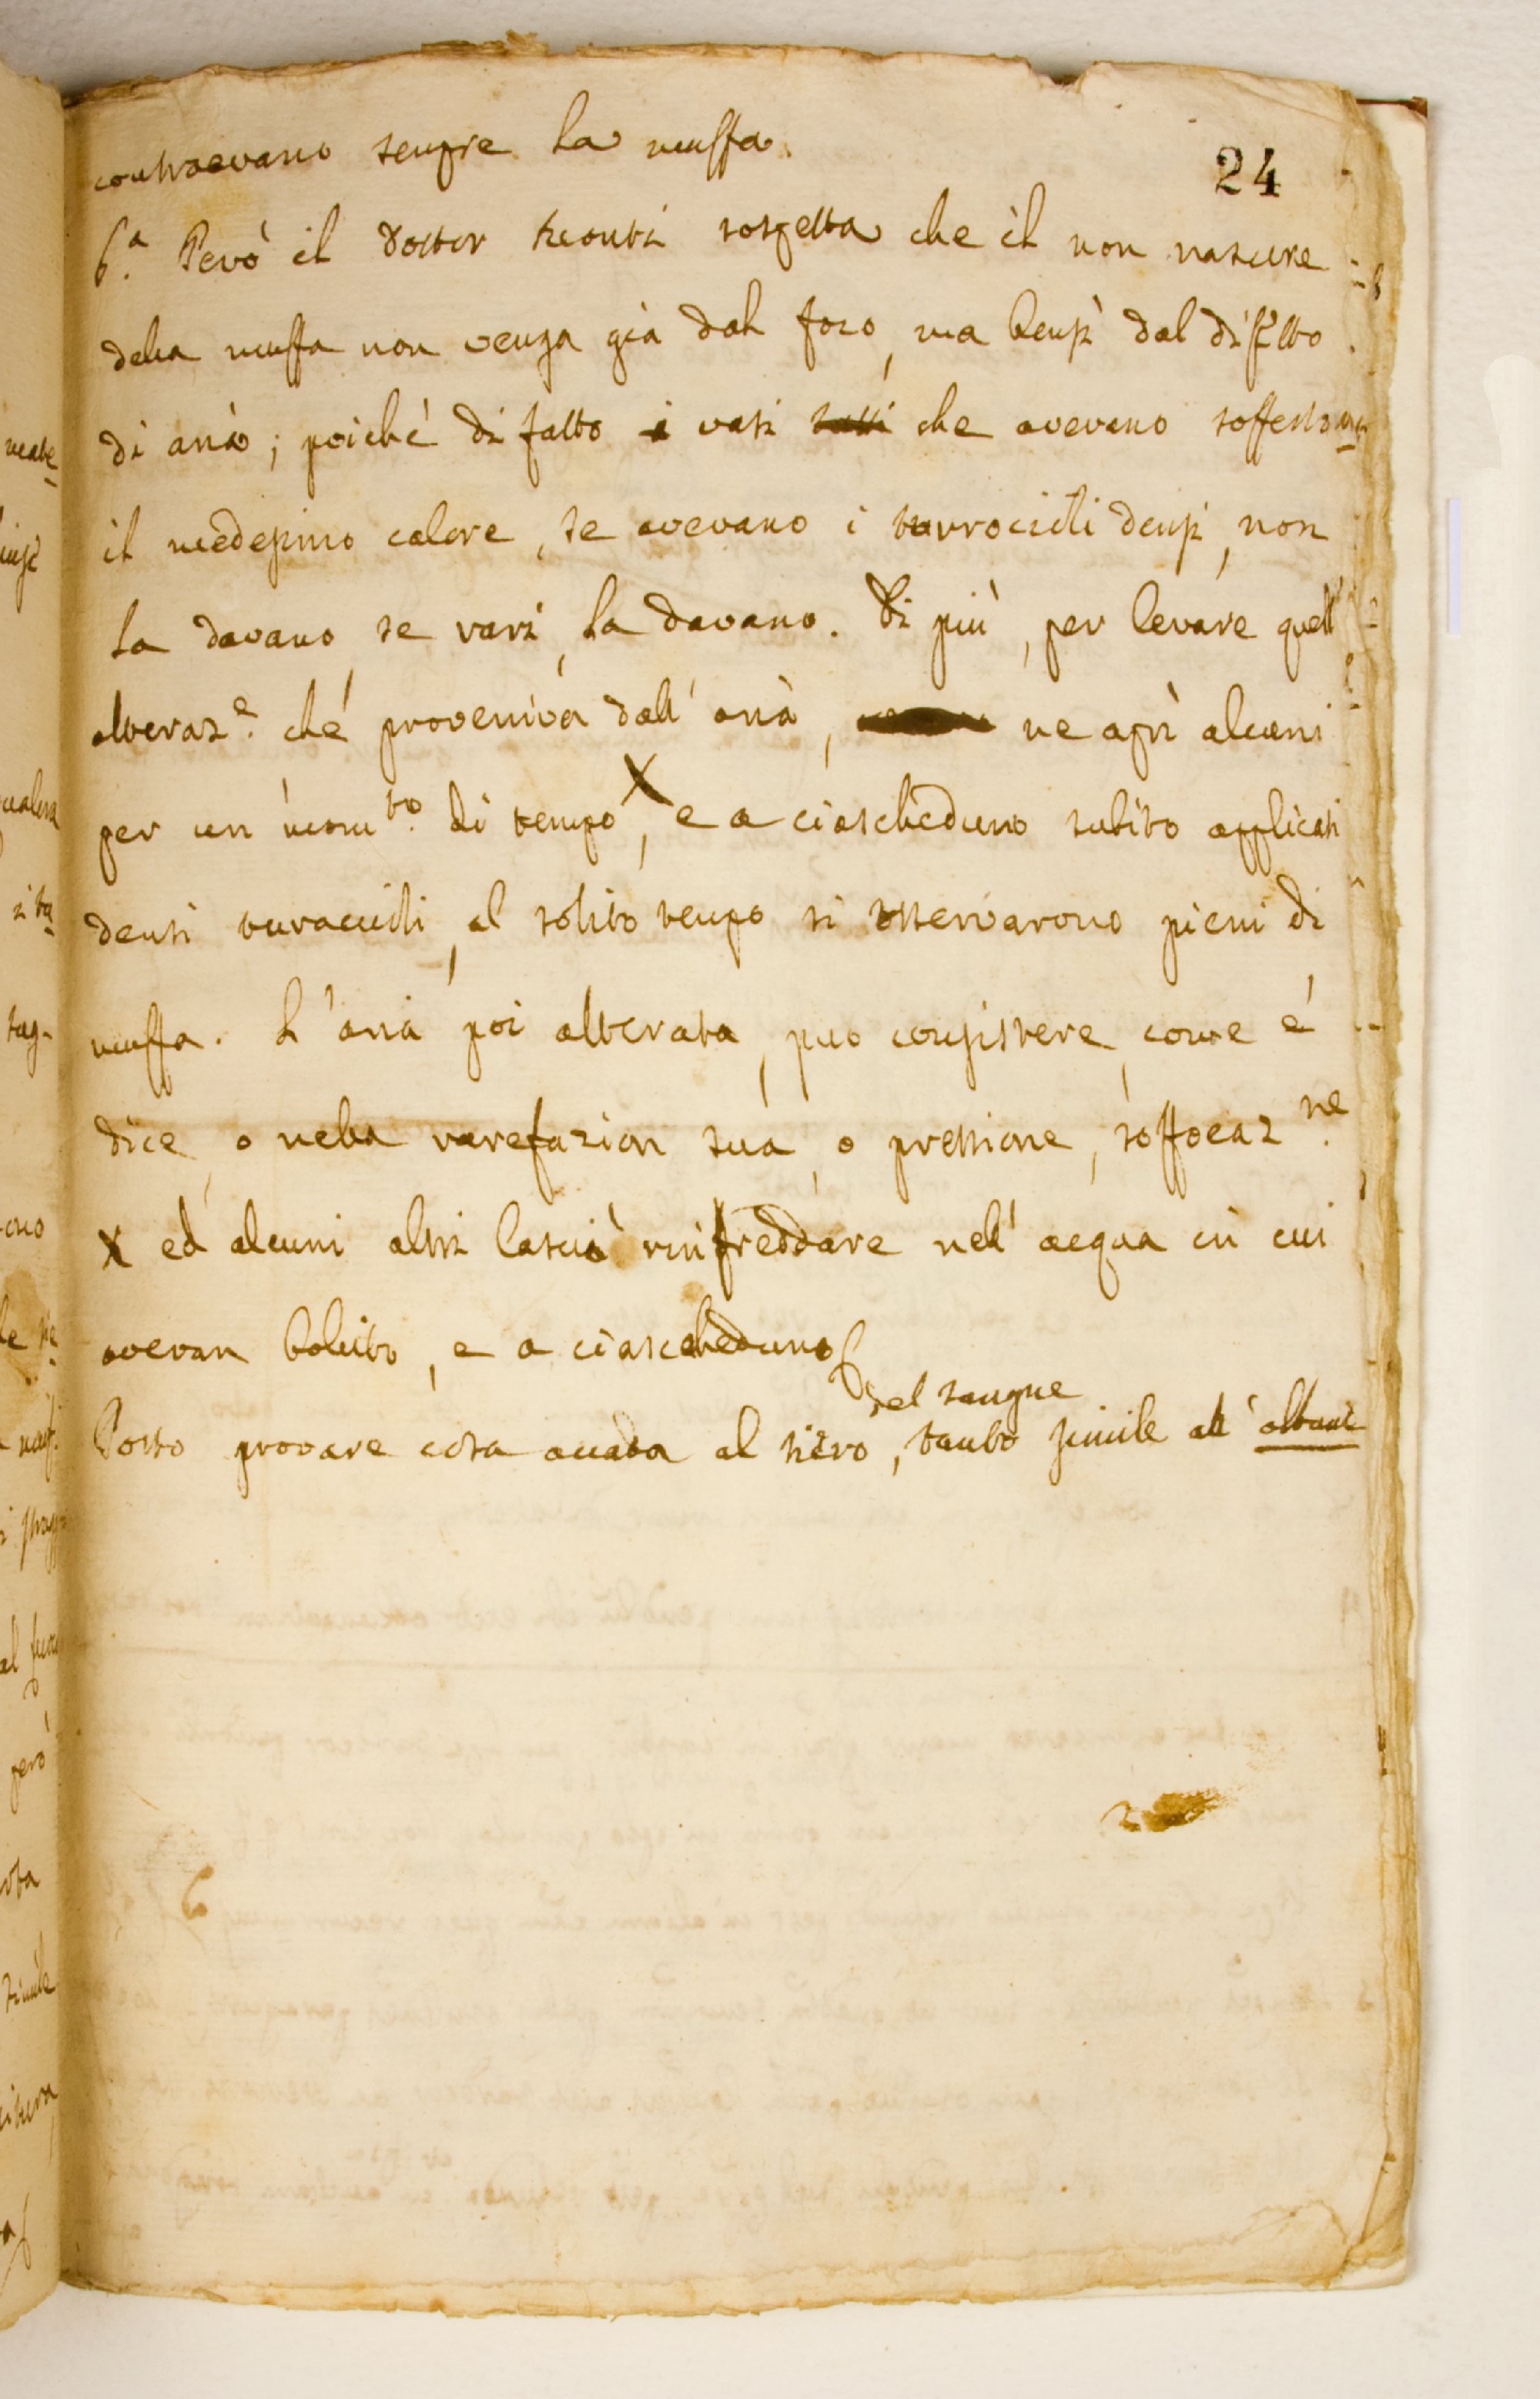 24
contraevano sempre la muffa.
6.ª Però il Dottor sospetta che il non nascere
della muffa non venga già dal foco, ma bensì dal difetto
di aria; poiché di fatto i vasi tutti che avevano sofferto
il medesimo calore, se avevano i turrocioli densi, non
la davano, se rari, la davano. Di più, per levare quell'
alteraz.e che proveniva dall'aria, ne aprì alcuni
per un mom.to di tempo X, e a ciascheduno subito applicati
densi turaccioli, al solito tempo si osservarono pieni di
muffa. L'aria poi alterata, può consistere, come e'
dice, o nella rarefazion sua, o pressione, soffocaz.ne
X ed alcuni altri lasciò rinfreddare nell'acqua in cui
avevan bolito, e a ciascheduno
del sangue
Posso provare cosa accada al siero, tanto simile all'